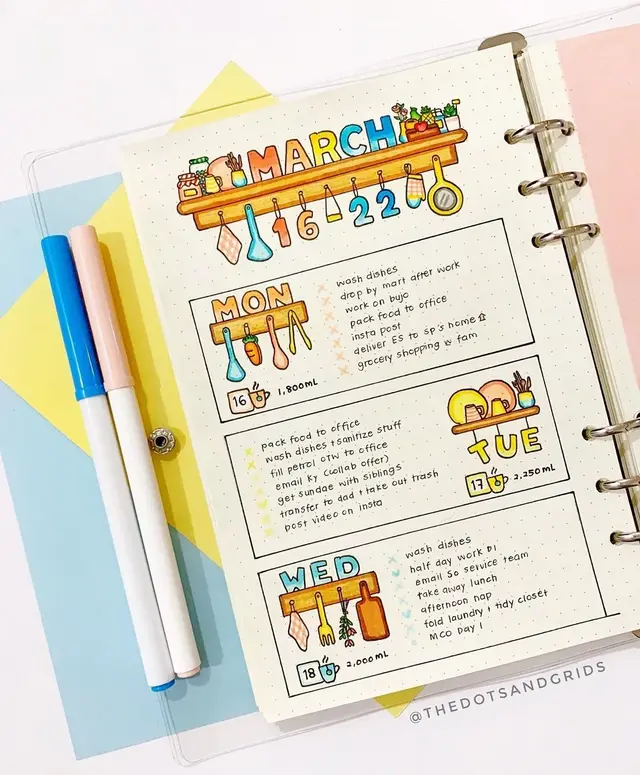 MARCH
16 - 22
MON
16
1,800mL
wash dishes
drop by mart after work
work on bujo
pack food to office
insta post
deliver ES to sp's home
grocery shopping w fam
pack food to office
wash dishes + sanitize stuff
fill petrol OTW to office
email KY (collab offer)
get sundae with siblings
transfer to dad + take out trash
post video on insta
TUE
17
2,250mL
WED
18
2,000mL
wash dishes
half day work D1
email So service team
take away lunch
afternoon nap
fold laundry + tidy closet
MCO Day 1
@THEDOTSANDGRIDS